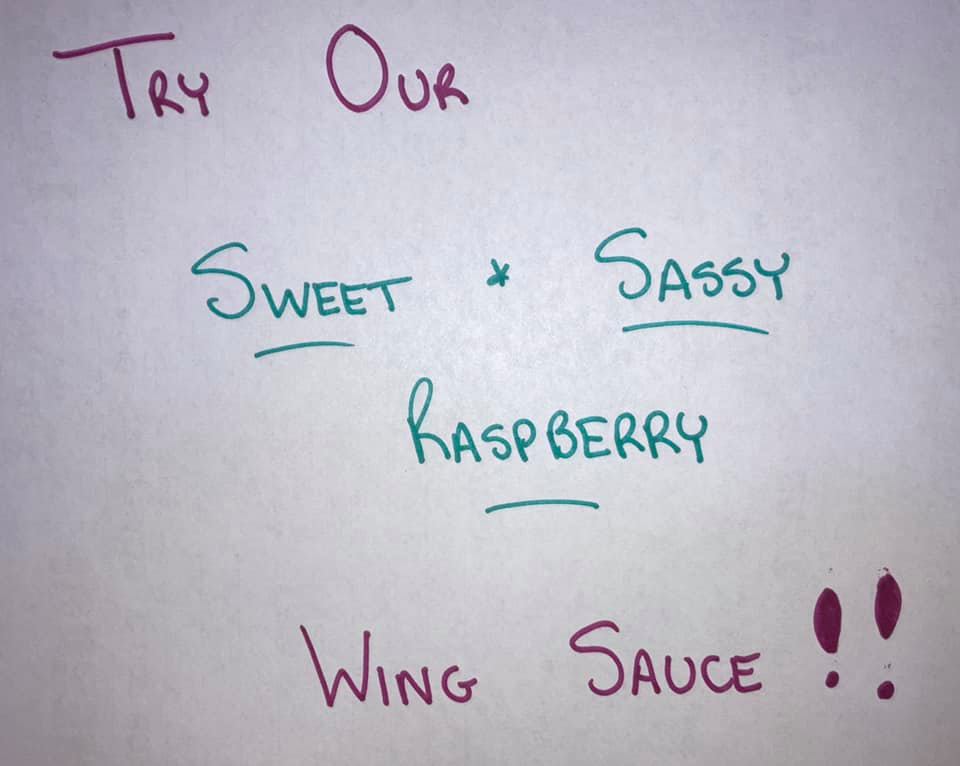 Try Our
Sweet * Sassy
Raspberry
Wing Sauce!!